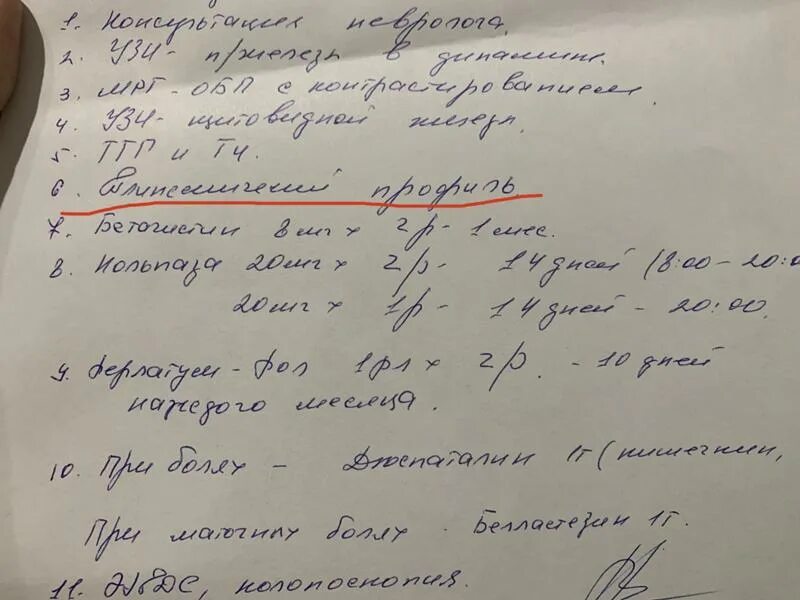 1. Консультация невролога
2. УЗИ - п/железы в динамике.
3. МРТ - ОБП с контрастированием
4. УЗИ - щитовидной железы.
5. ТТГ и Т4.
6. профиль
7. Бетагистин 8 мг х 2р - 1 мес.
8. Нольпаза 20мг х 2р - 14 дней (8:00 - 20:00
20мг х 1р - 14 дней - 20:00.
9. Ферлатум - Фол 1фл х 2р. - 10 дней
каждого месяца.
10. При болях - Дюспаталин 1т (кишечник,
При маточных болях - Белластезин 1т.
11. ЭГДС, колоноскопия.